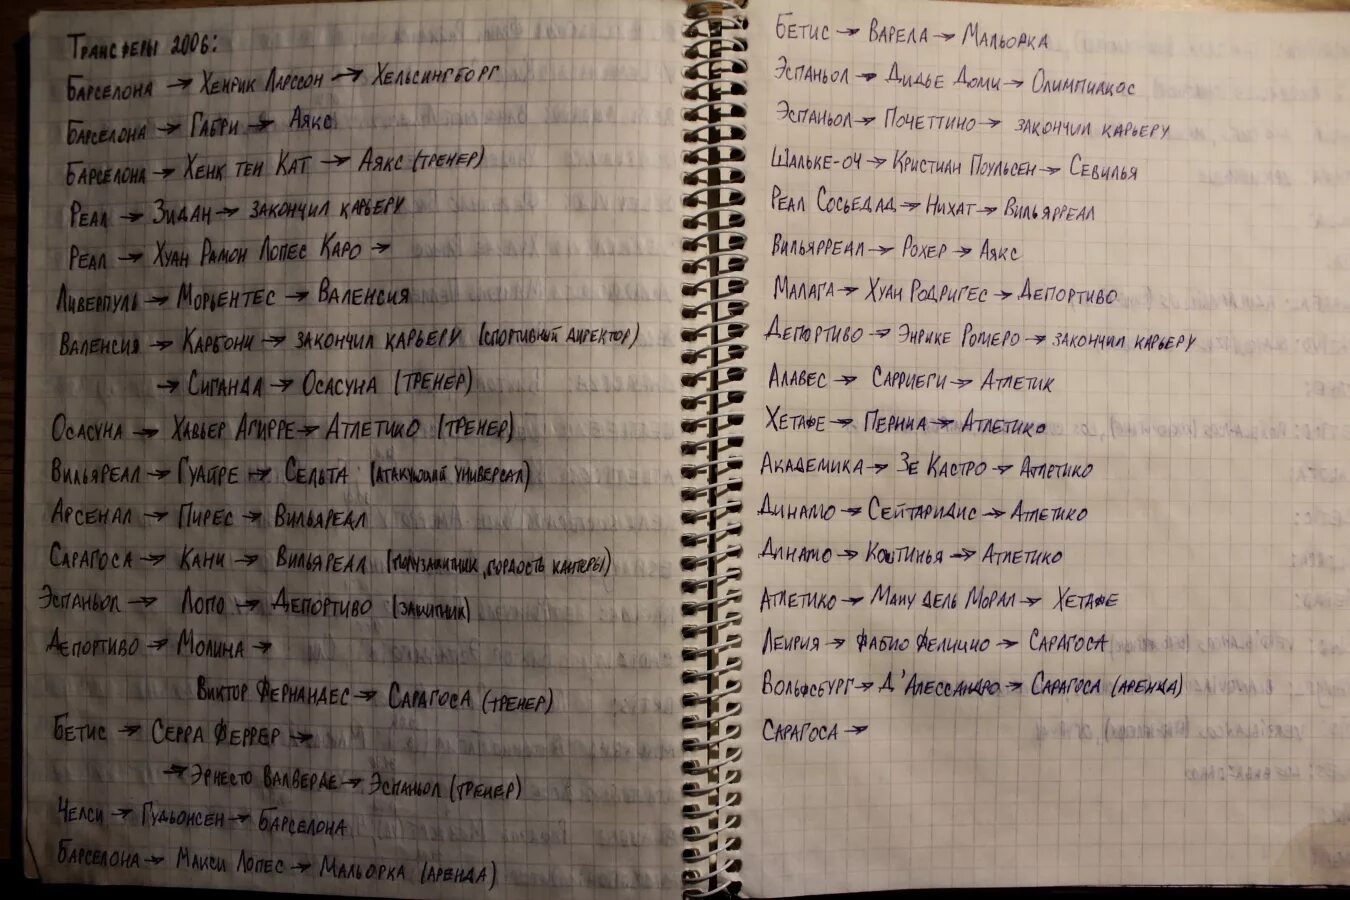 Трансферы 2006:
Барселона → Хенрик Ларссон → Хельсингборг
Барселона → Габри → Аякс
Барселона → Хенк тен Кат → Аякс (тренер)
Реал → Зидан → закончил карьеру
Реал → Хуан Рамон Лопес Каро →
Ливерпуль → Морьентес → Валенсия
Валенсия → Карбони → закончил карьеру (спортивный директор)
→ Сиганда → Осасуна (тренер)
Осасуна → Хавьер Агирре → Атлетико (тренер)
Вильяреал → Гуайре → Сельта (атакующий универсал)
Арсенал → Пирес → Вильяреал
Сарагоса → Кани → Вильяреал (полузащитник, гордость кантеры)
Эспаньол → Лопо → Депортиво (защитник)
Депортиво → Молина →
Виктор Фернандес → Сарагоса (тренер)
Бетис → Серра Феррер →
→ Эрнесто Валверде → Эспаньол (тренер)
Челси → Гудьонсен → Барселона
Барселона → Макси Лопес → Мальорка (аренда)
Бетис → Варела → Мальорка
Эспаньол → Дидье Доми → Олимпиакос
Эспаньол → Почеттино → закончил карьеру
Шальке-04 → Кристиан Поульсен → Севилья
Реал Сосьедад → Нихат → Вильярреал
Вильярреал → Рохер → Аякс
Малага → Хуан Родригес → Депортиво
Депортиво → Энрике Ромеро → закончил карьеру
Алавес → Сарриеги → Атлетик
Хетафе → Перниа → Атлетико
Академика → Зе Кастро → Атлетико
Динамо → Сейтаридис → Атлетико
Динамо → Коштинья → Атлетико
Атлетико → Ману дель Морал → Хетафе
Леирия → Фабио Фелицио → Сарагоса
Вольфсбург → Д'Алессандро → Сарагоса (аренда)
Сарагоса →